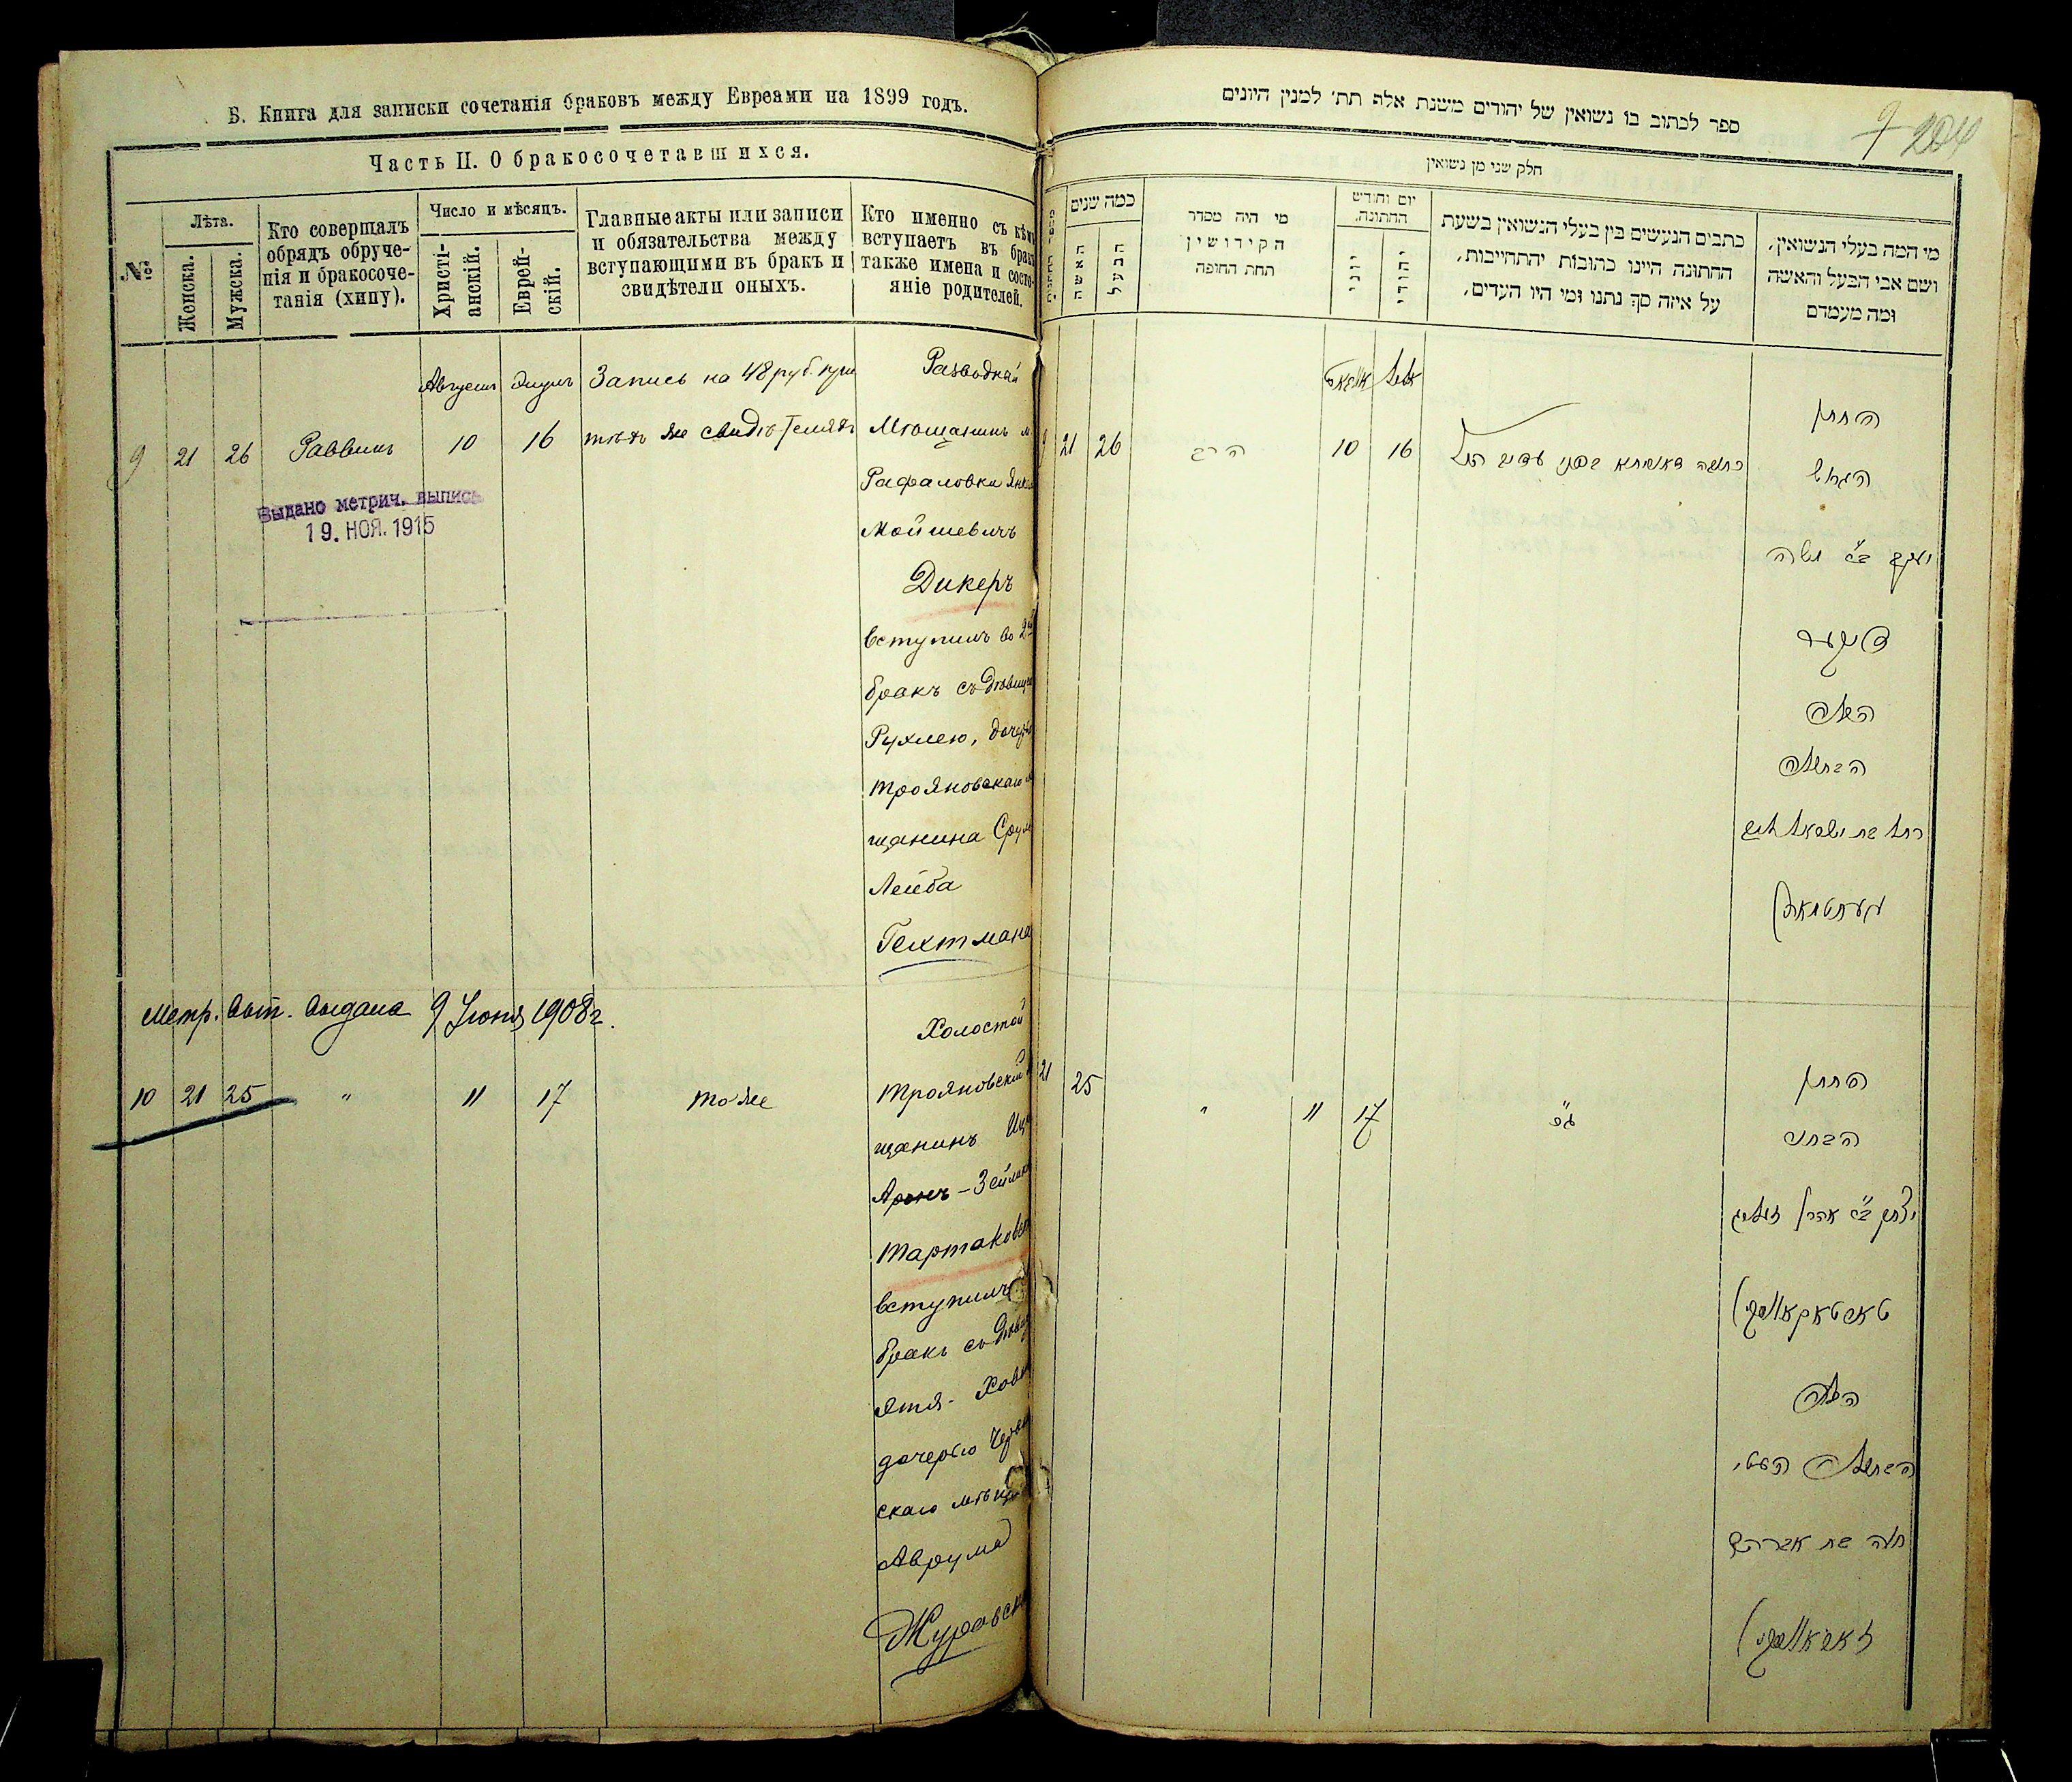 Б. Книга для записки сочетанія браковъ между Евреами на 1899 годъ.
Часть II. О бракосочетавшихся.
№
Лѣта.
Женска.
Мужска.
Кто совершалъ
обрядъ обруче-
нія и бракосоче-
танія (хипу).
Число и мѣсяцъ.
Христі-
анскій.
Еврей-
скій.
Главные акты или записи
и обязательства между
вступающими въ бракъ и
свидѣтели оныхъ.
Кто именно съ кѣмъ
вступаетъ въ бракъ
также имена и состо-
яніе родителей.
Августъ Элулъ Запись на 48 руб. при
9 21 26 Раввинъ 10 16 тѣхъ же свидѣтеляхъ
Выдано метрич. выпись
19. НОЯ. 1915
Разводной
Мѣщанинъ м.
Рафаловки
Мойшевичъ
Дикеръ
вступилъ во 2й
бракъ съ дѣвицею
Рухлею,
трояновскаго
щанина Срул
Лейба
Гехтмана
Метр. вып. выдана 9 Іюня 1908 г.
10 21 25 " 11 17 тоже
Холостой
трояновский
щанинъ
Аронъ-Зейлик
тартаков
вступилъ
бракъ съ
Этя-Хова
дочерью
скаго мѣщ
Аврума
Журавск
ספר לכתוב בו נשואין של יהודים משנת אלף תת׳ למנין היונים
9 204
חלק שני מן נשואין
כמה שנים
האשה
הבעל
מי היה מסדר
הקידושין
תחת החופה
יום וחודש
החתונה.
יוני
יהודי
כתבים הנעשים בין בעלי הנשואין בשעת
החתונה היינו כתובות יהתחייבות,
על איזה סך נתנו ומי היו העדים,
מי המה בעלי הנשואין,
ושם אבי הבעל והאשה
ומה מעמדם
אלול
9 21 26 הרב 10 16
החתן
הגרוש
יעקב ב״ר משה
דיקער
הכלה
הבתולה
רחל בת ישראל ליב
געכטמאן
21 25 " 11 17 כנ״ל
החתן
הבחור
יצחק ב״ר אהרן זעליג
טארטאקאווסקי
הכלה
הבתולה העטי
חוה בת אברהם